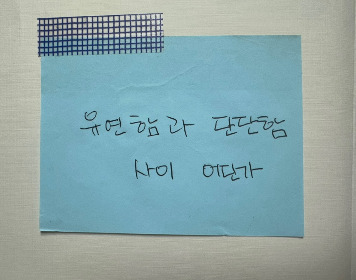 유연함과 단단함
사이 어딘가